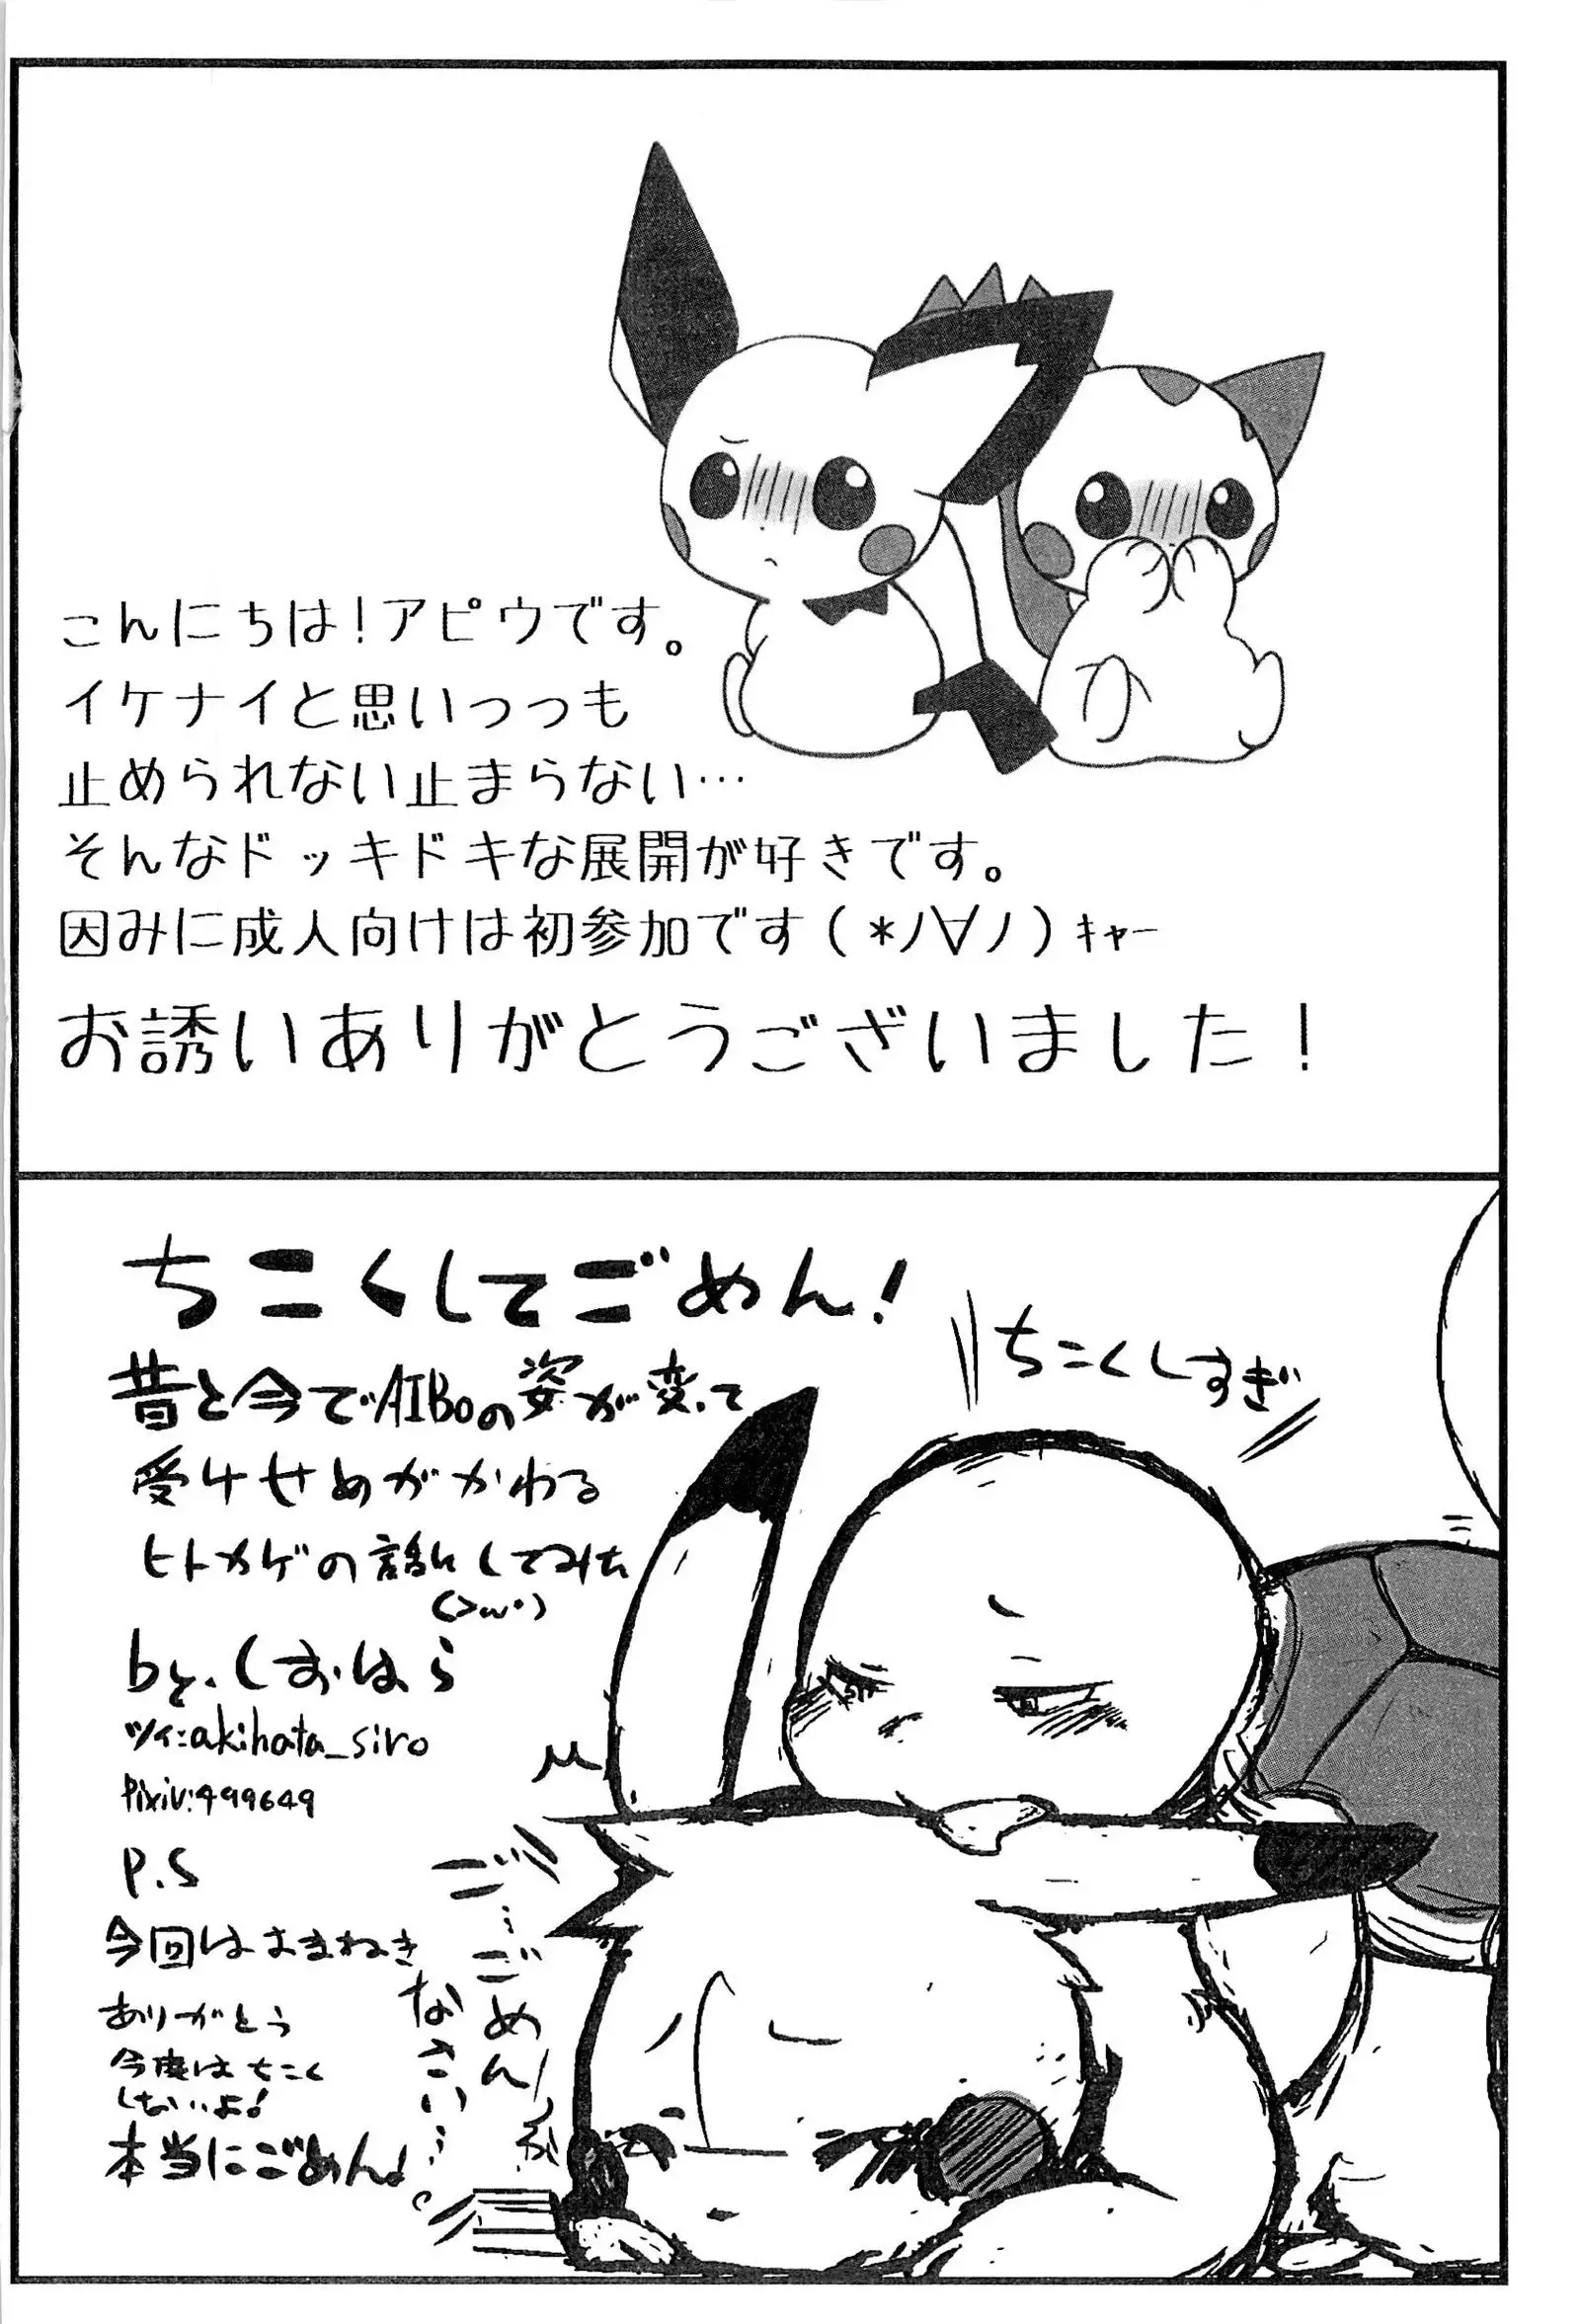 こんにちは！アピウです。
イケナイと思いっつも
止められない止まらない…
そんなドッキドキな展開が好きです。
因みに成人向けは初参加です(*ﾉ∀ﾉ)ｷｬｰ
お誘いありがとうございました！
ちこくしてごめん！
昔と今でAIBoの姿が変って
受けせめがかわる
ヒトカゲの話にしてみた
(>ω•)
by.しおはら
ツイ:akihata_siro
Pixiv:499649
P.S
今回はおまねき
ありがとう
今度はちこく
しないよ！
本当にごめん！
ちこくしすぎ
ご…ごめん
なさい…